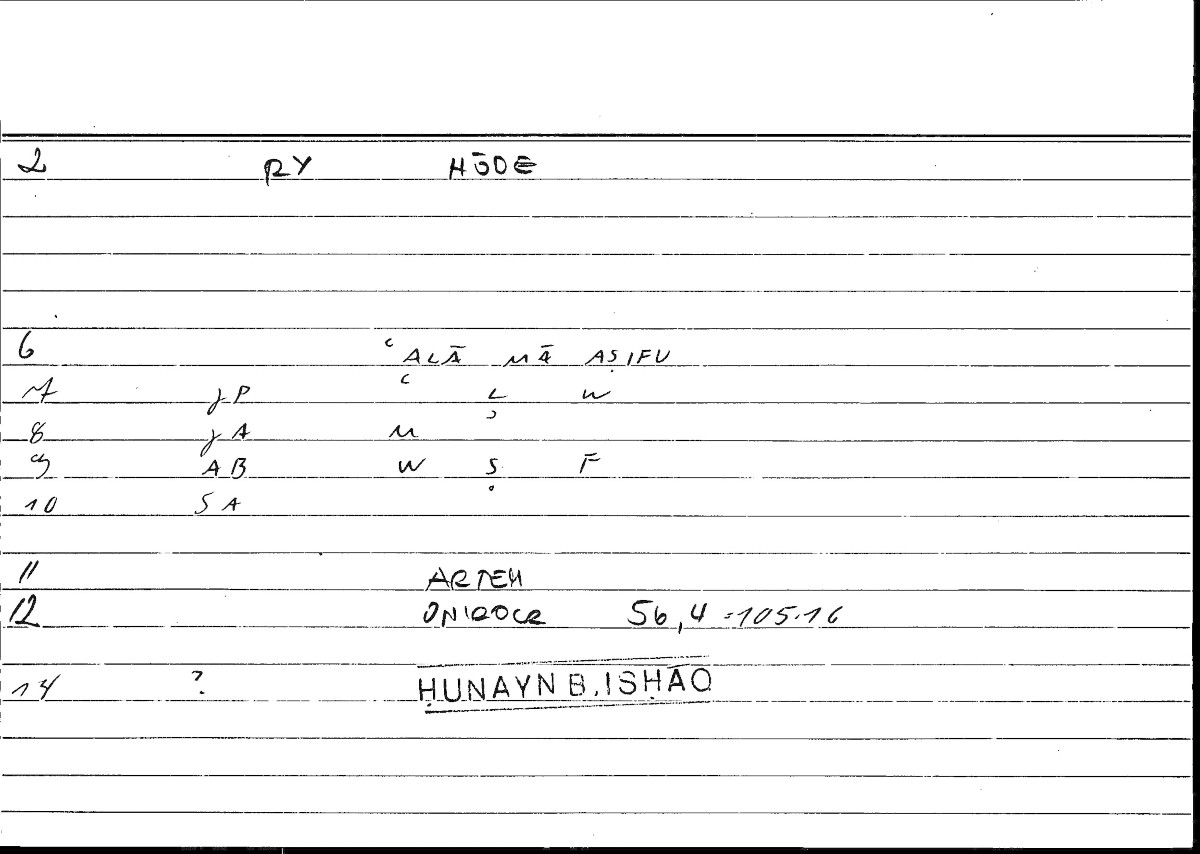 2 RY HŌDE
6 ʿALĀ MĀ AṢIFU
7 jP ʿ L W
8 jA M ʾ
9 AB W Ṣ F
10 SA °
11 ARTEM
12 ONIROCR 56,4 = 105.16
14 ? ḤUNAYN B. ISḤĀQ